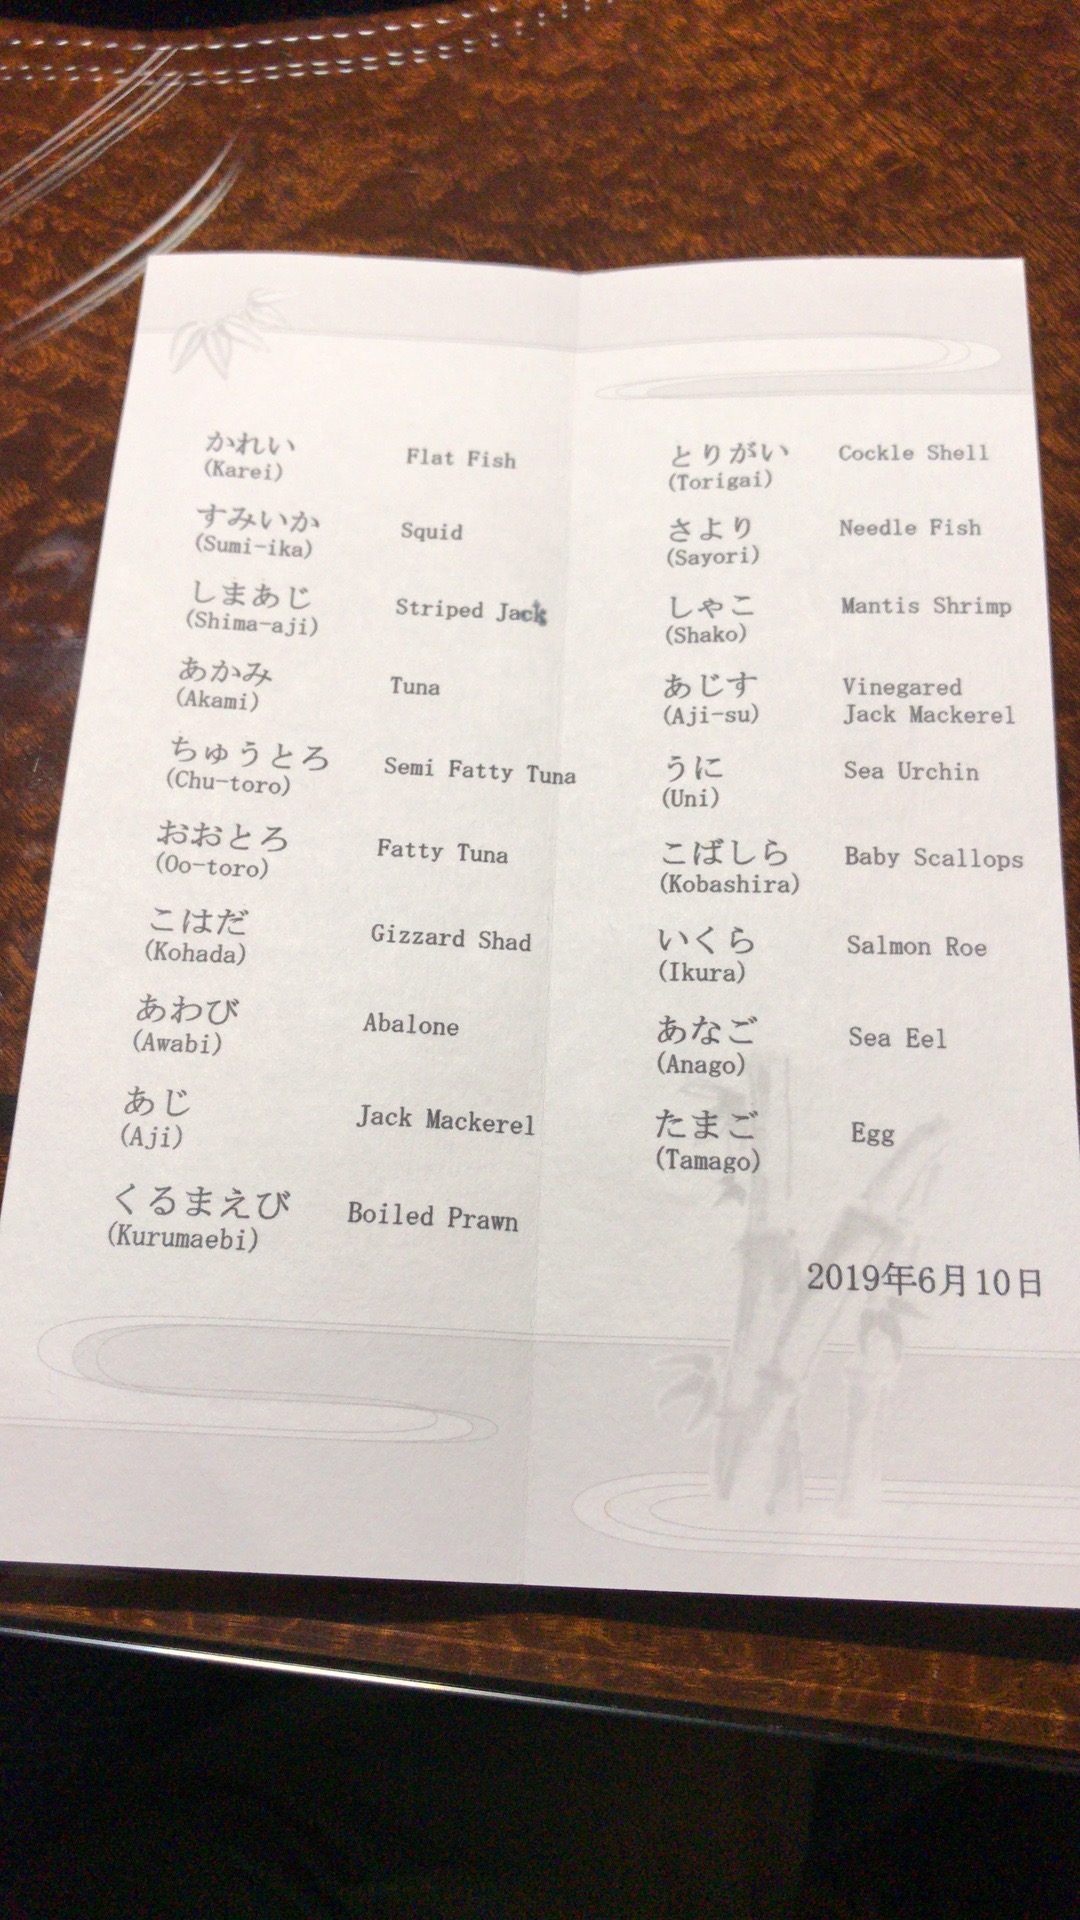 かれい Flat Fish
(Karei)
すみいか Squid
(Sumi-ika)
しまあじ Striped Jack
(Shima-aji)
あかみ Tuna
(Akami)
ちゅうとろ Semi Fatty Tuna
(Chu-toro)
おおとろ Fatty Tuna
(Oo-toro)
こはだ Gizzard Shad
(Kohada)
あわび Abalone
(Awabi)
あじ Jack Mackerel
(Aji)
くるまえび Boiled Prawn
(Kurumaebi)
とりがい Cockle Shell
(Torigai)
さより Needle Fish
(Sayori)
しゃこ Mantis Shrimp
(Shako)
あじす Vinegared
(Aji-su) Jack Mackerel
うに Sea Urchin
(Uni)
こばしら Baby Scallops
(Kobashira)
いくら Salmon Roe
(Ikura)
あなご Sea Eel
(Anago)
たまご Egg
(Tamago)
2019年6月10日